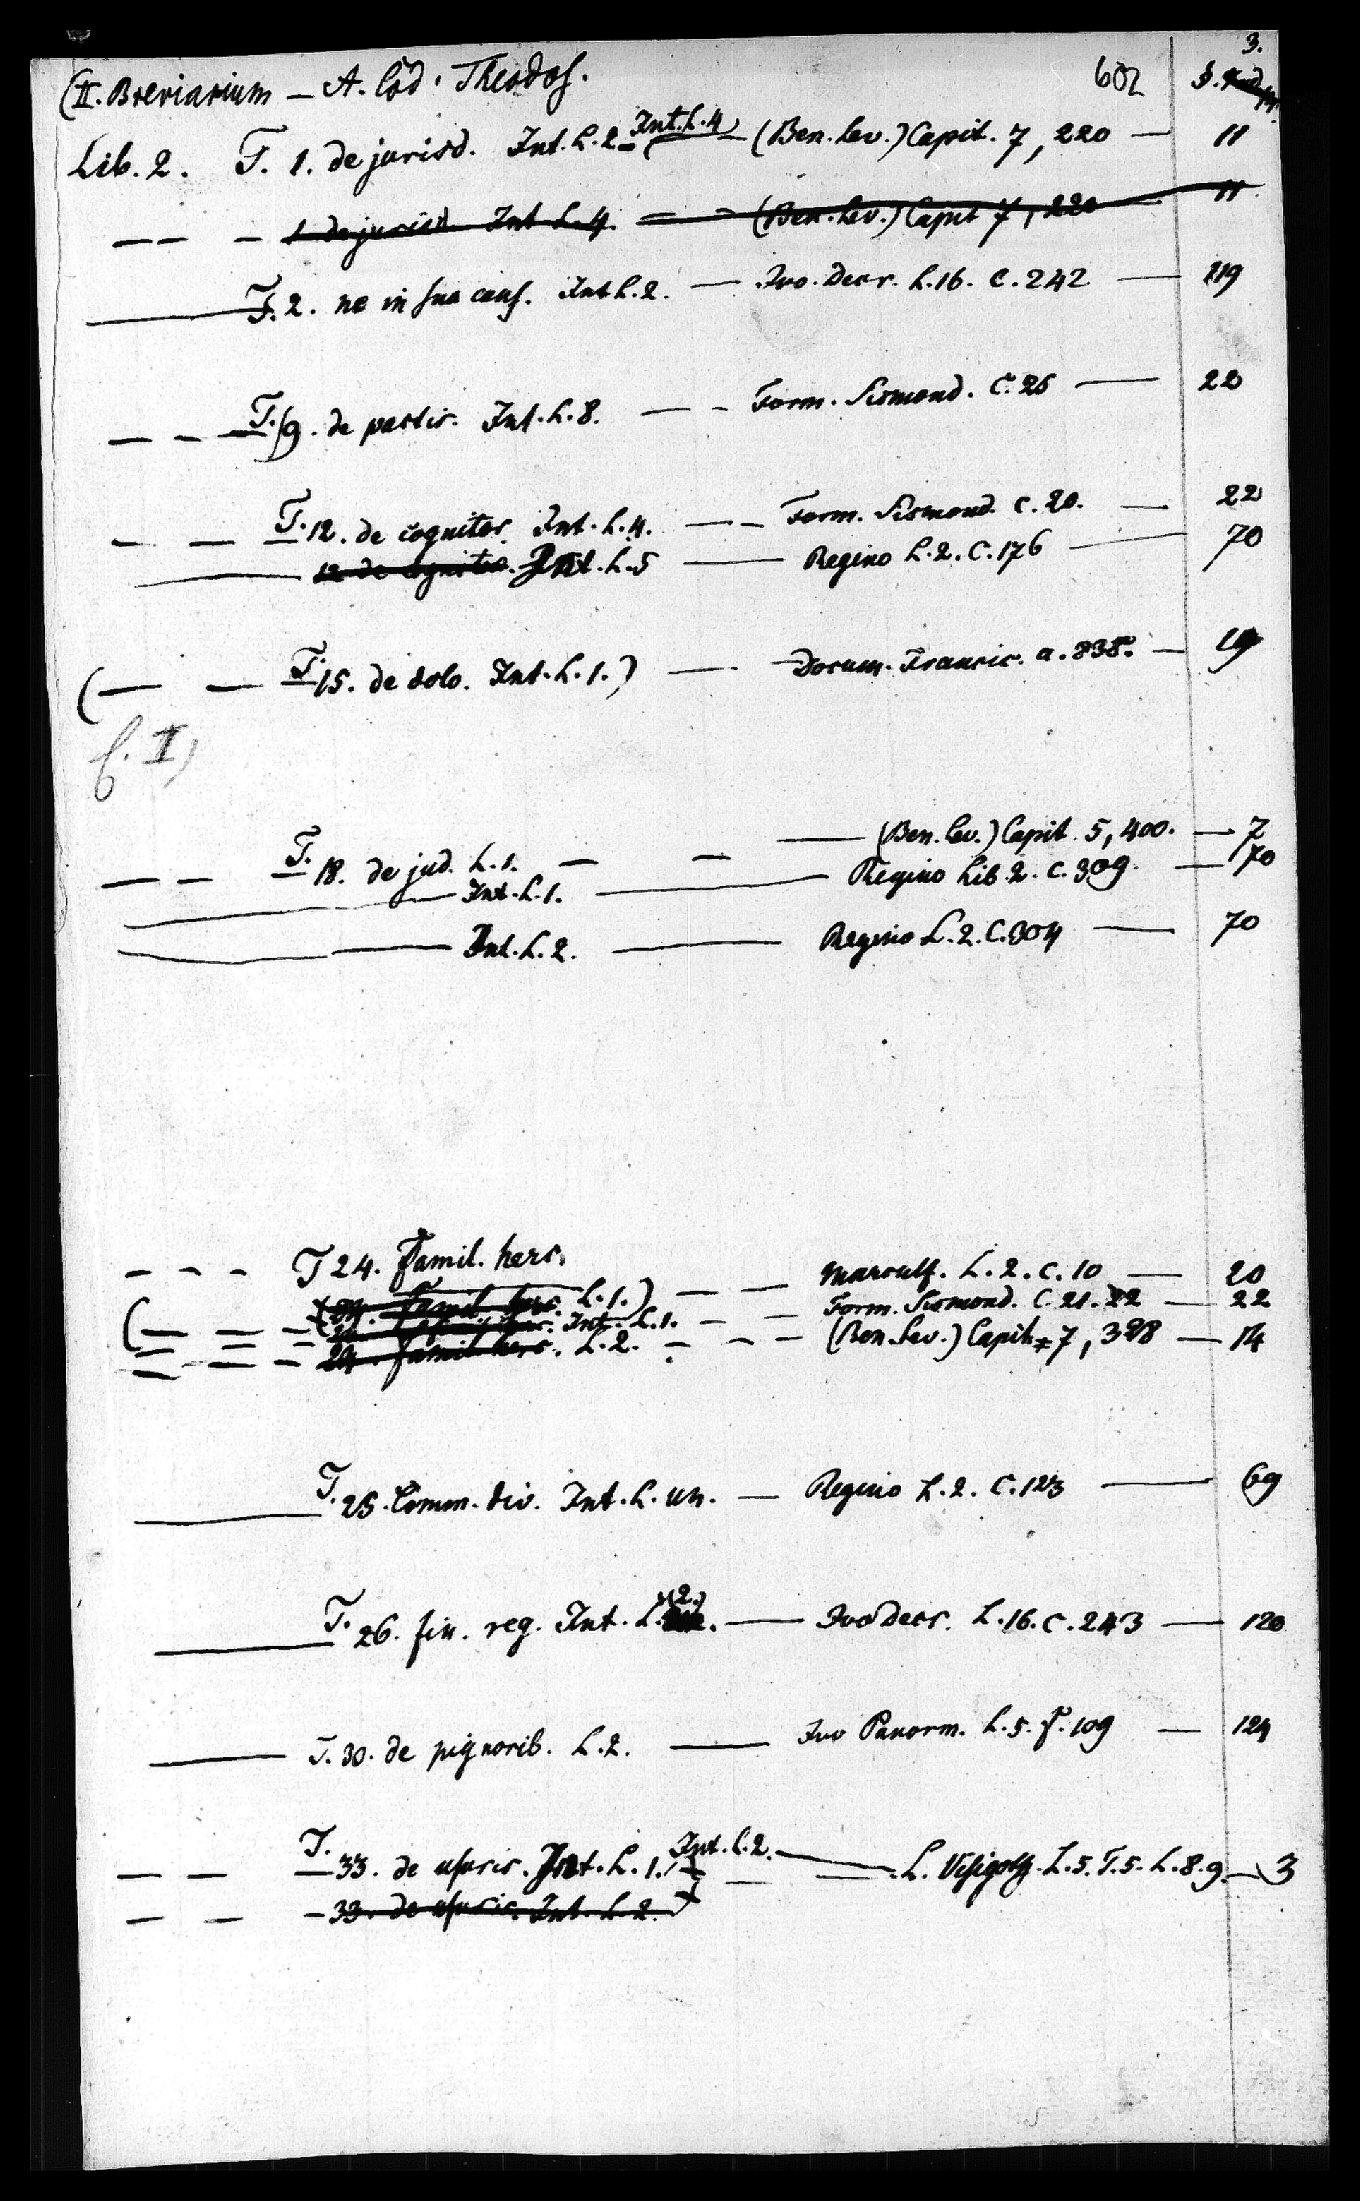 3.
(II. Breviarium — A. Cod. Theodos. 602 S.
Lib. 2. T. 1. de jurisd. Int. L. 2 — Int. L. 4) — (Ben. Lev.) Capit. 7, 220 — 11
— — — 1 de jurisd. Int. L. 4. — — (Ben. Lev.) Capit 7, 220 — 11
— T. 2. ne in sua caus. Int L. 2. — Ivo. Decr. L. 16. C. 242 — 119
— — — T. 9. de pactis. Int. L. 8. — — Form. Sirmond. C. 26 — 22
— — — T. 12. de cognitor. Int. L. 4. — — Form. Sirmond. C. 20. — 22
— 12 de cognitor. Int. L. 5 — Regino L. 2. C. 176 — 70
( — — — T. 15. de dolo. Int. L. 1.) — — Docum. Francic. a. 838. — 19
f. I)
— (Ben. Lev.) Capit. 5, 400. — 7
— — — T. 18. de jud. L. 1. — — Regino Lib. 2. C. 309. — 70
— Int. L. 1.
— Int. L. 2. — Regino L. 2. C. 304 — 70
— — — T 24. Famil. herc.
(24. Famil. herc. L. 1.) — — Marculf. L. 2. C. 10 — 20
( — — — 24. Famil. herc. Int. L. 1. — — Form. Sirmond. C. 21. 22 — 22
— — — 24. famil. herc. L. 2. — — — (Ben. Lev.) Capit. 7, 328 — 14
— T. 25. Comm. div. Int. L. un. — Regino L. 2. C. 123 — 69
— T. 26. fin. reg. Int. L. (2.) — Ivo Decr. L. 16. C. 243 — 120
— T. 30. de pignorib. L. 2. — Ivo Panorm. L. 5. T. 109 — 124
— — T. — 33. de usuris. Int. L. 1. Int. L. 2. — L. Visigoth. L. 5. T. 5. L. 8. 9. — 3
— — — 33. de usuris. Int. L. 2.